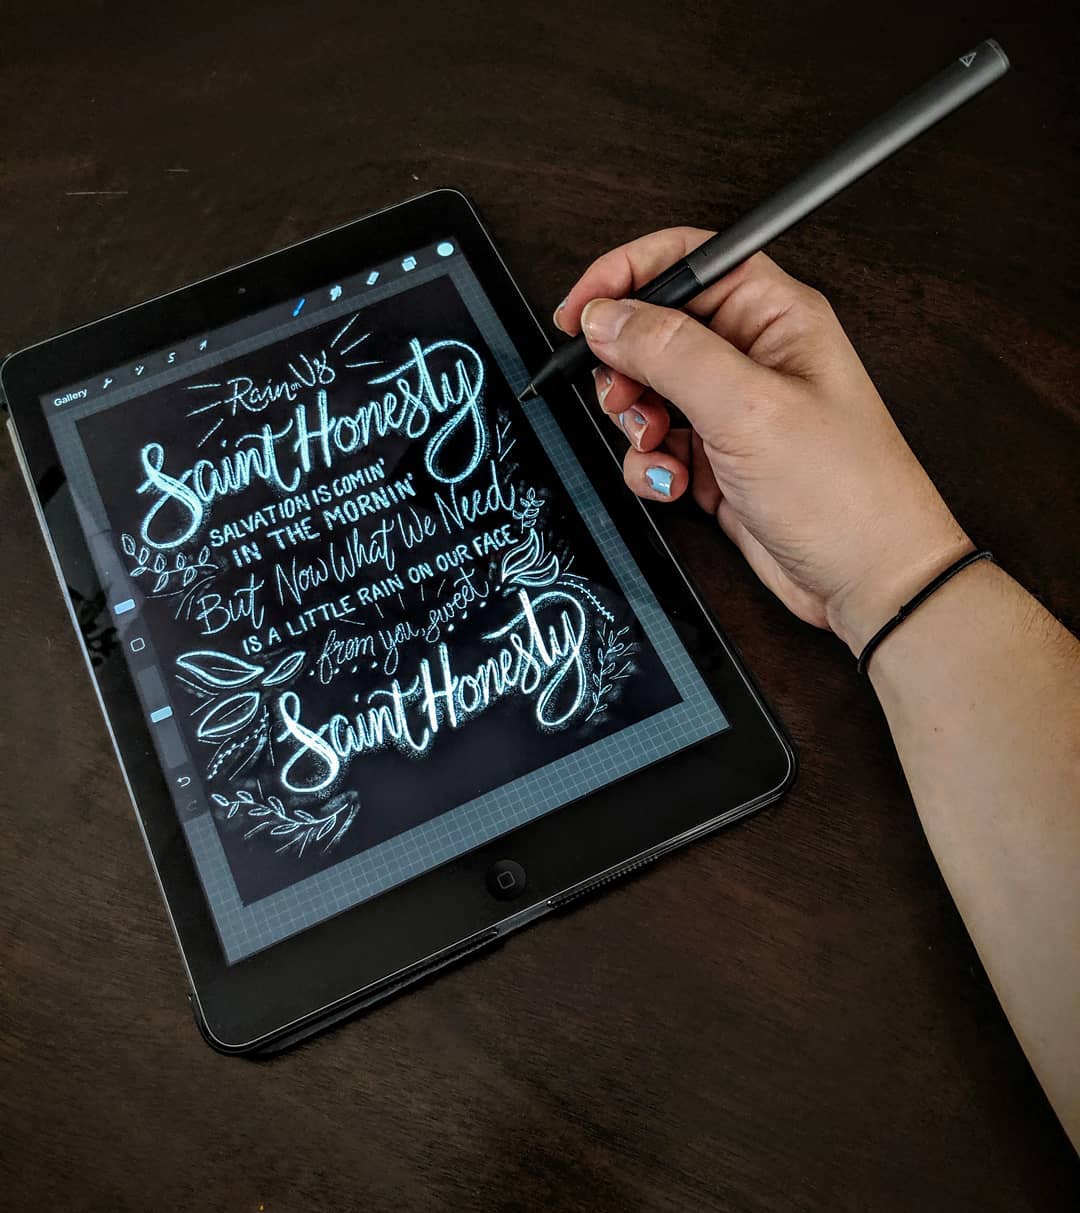 Gallery
Rain on Us
Saint Honesty
SALVATION IS COMIN'
IN THE MORNIN'
But Now What We Need
IS A LITTLE RAIN ON OUR FACE
from you, sweet
Saint Honesty